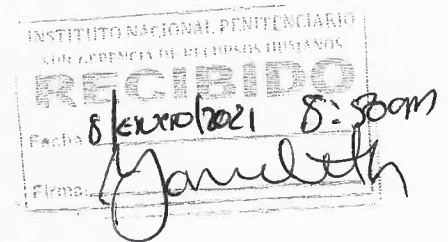 INSTITUTO NACIONAL PENITENCIARIO
SUB GERENCIA DE RECURSOS HUMANOS
RECIBIDO
Fecha 8/enero/2021 8:50am
Firma: